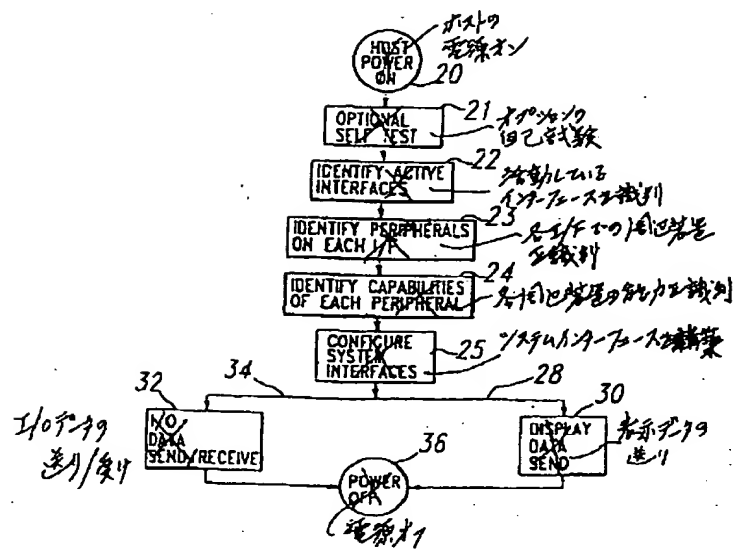 HOST
POWER
ON
ホストの
電源オン
20
OPTIONAL
SELF TEST
21
オプションの
自己試験
22
IDENTIFY ACTIVE
INTERFACES
活動している
インターフェースを識別
23
IDENTIFY PERIPHERALS
ON EACH I/F
各I/Fでの周辺装置
を識別
24
IDENTIFY CAPABILITIES
OF EACH PERIPHERAL
各周辺装置の能力を識別
CONFIGURE
SYSTEM
INTERFACES
25
システムインターフェースを構築
34
28
32
I/O
DATA
SEND/RECEIVE
I/Oデータの
送り/受け
30
DISPLAY
DATA
SEND
表示データの
送り
36
POWER
OFF
電源オフ